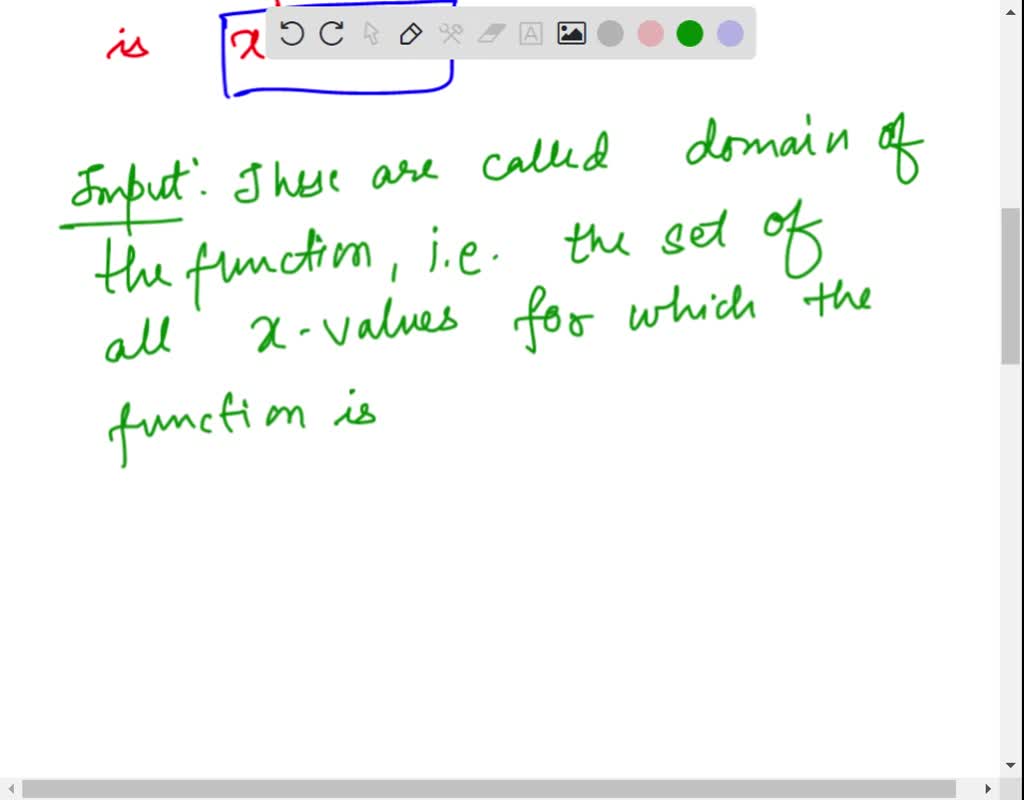 is x
Input: These are called domain of
the function, i.e. the set of
all x-values for which the
function is